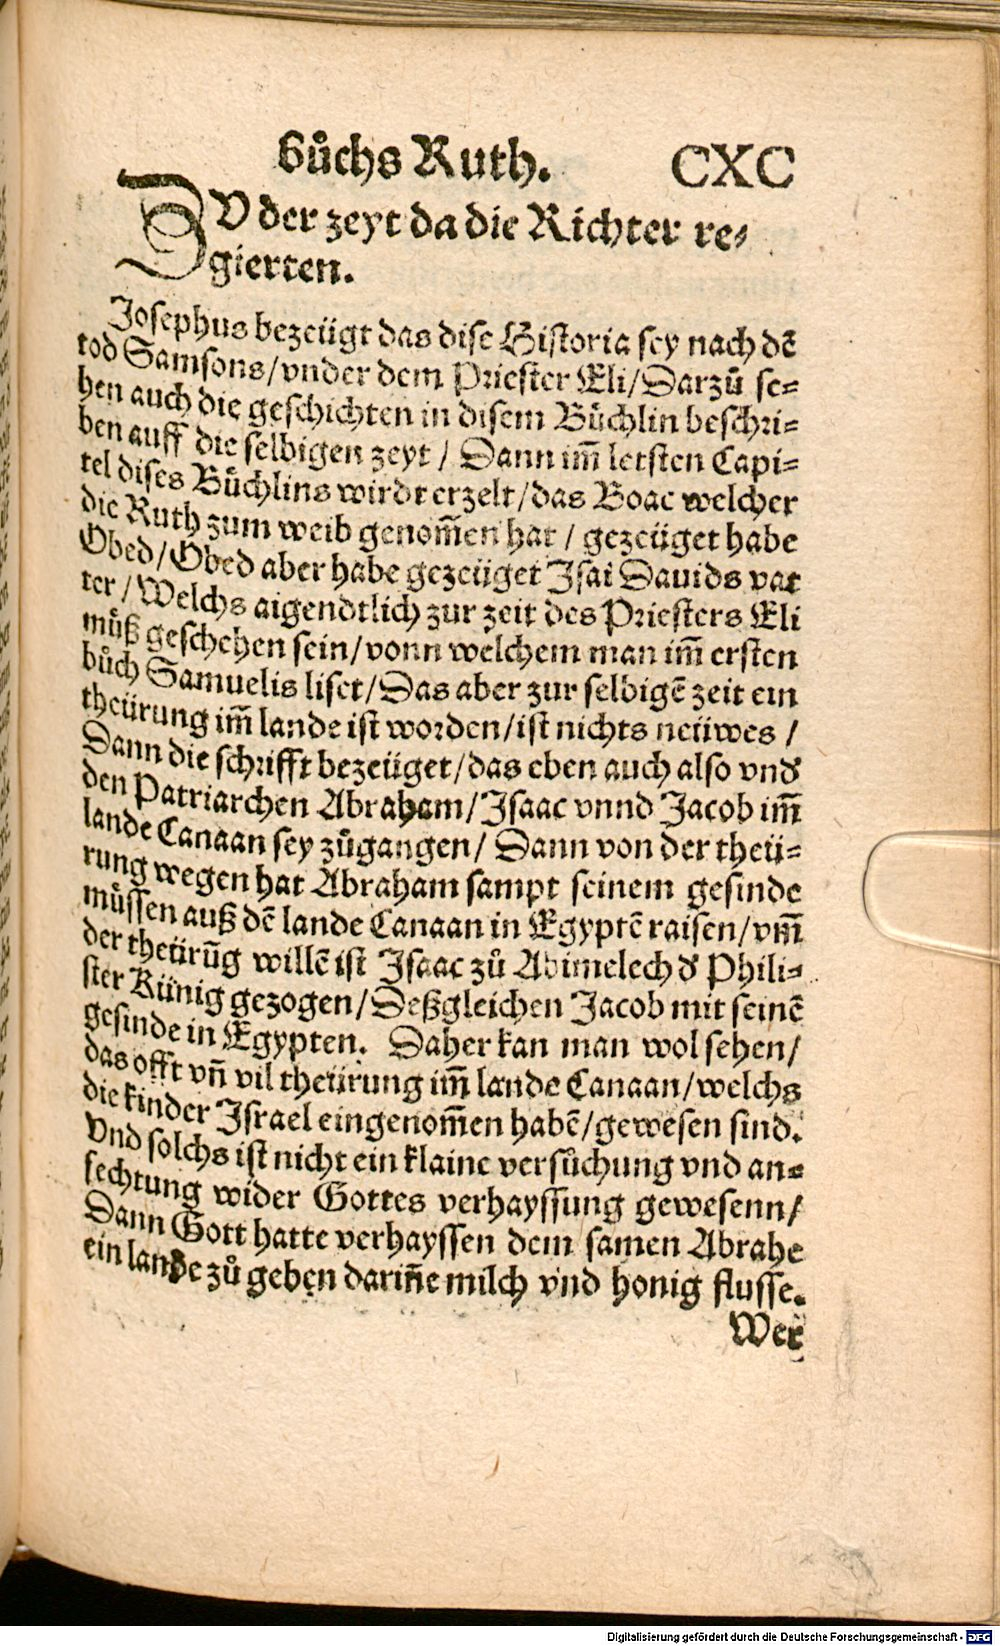 bůchs Ruth. CXC
ZV der zeyt da die Richter re-
gierten.
Josephus bezeügt das dise Historia sey nach dẽ
tod Samsons/vnder dem Priester Eli/Darzů se-
hen auch die geschichten in disem Bůchlin beschri-
ben auff die selbigen zeyt / Dann im̃ letsten Capi-
tel dises Bůchlins wirdt erzelt/das Boac welcher
die Ruth zum weib genom̃en hat / gezeüget habe
Obed/Obed aber habe gezeüget Jsai Dauids vat
ter / Welchs aigendtlich zur zeit des Priesters Eli
můß geschehen sein/vonn welchem man im̃ ersten
bůch Samuelis liset/Das aber zur selbigẽ zeit ein
theürung im̃ lande ist worden/ist nichts neüwes /
Dann die schrifft bezeüget/das eben auch also vnd
den Patriarchen Abraham/Jsaac vnnd Jacob im̃
lande Canaan sey zůgangen/ Dann von der theü-
rung wegen hat Abraham sampt seinem gesinde
můssen auß dẽ lande Canaan in Egyptẽ raisen/vm̃
der theürũg willẽ ist Jsaac zů Abimelech d Phili-
ster Künig gezogen/Deßgleichen Jacob mit seinẽ
gesinde in Egypten. Daher kan man wol sehen/
das offt vñ vil theürung im̃ lande Canaan/welchs
die kinder Jsrael eingenom̃en habẽ/gewesen sind.
Vnd solchs ist nicht ein klaine versůchung vnd an-
fechtung wider Gottes verhayssung gewesenn/
Dann Gott hatte verhayssen dem samen Abrahe
ein lande zů geben dariñe milch vnd honig flusse.
Wer
Digitalisierung gefördert durch die Deutsche Forschungsgemeinschaft - DFG